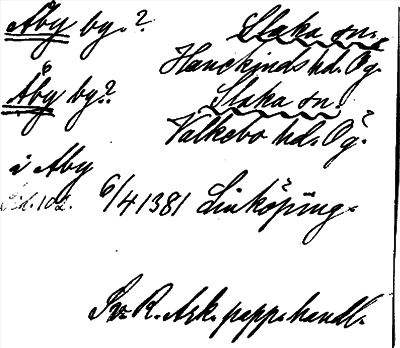 Åby by.? Slaka sn.
Hanekinds hd. Ög.
Åby by? Slaka sn.
Valkebo hd. Ög.
i Aby
102. 6/4 1381 Linköping.
Sv. R. Ark. papp. handl.